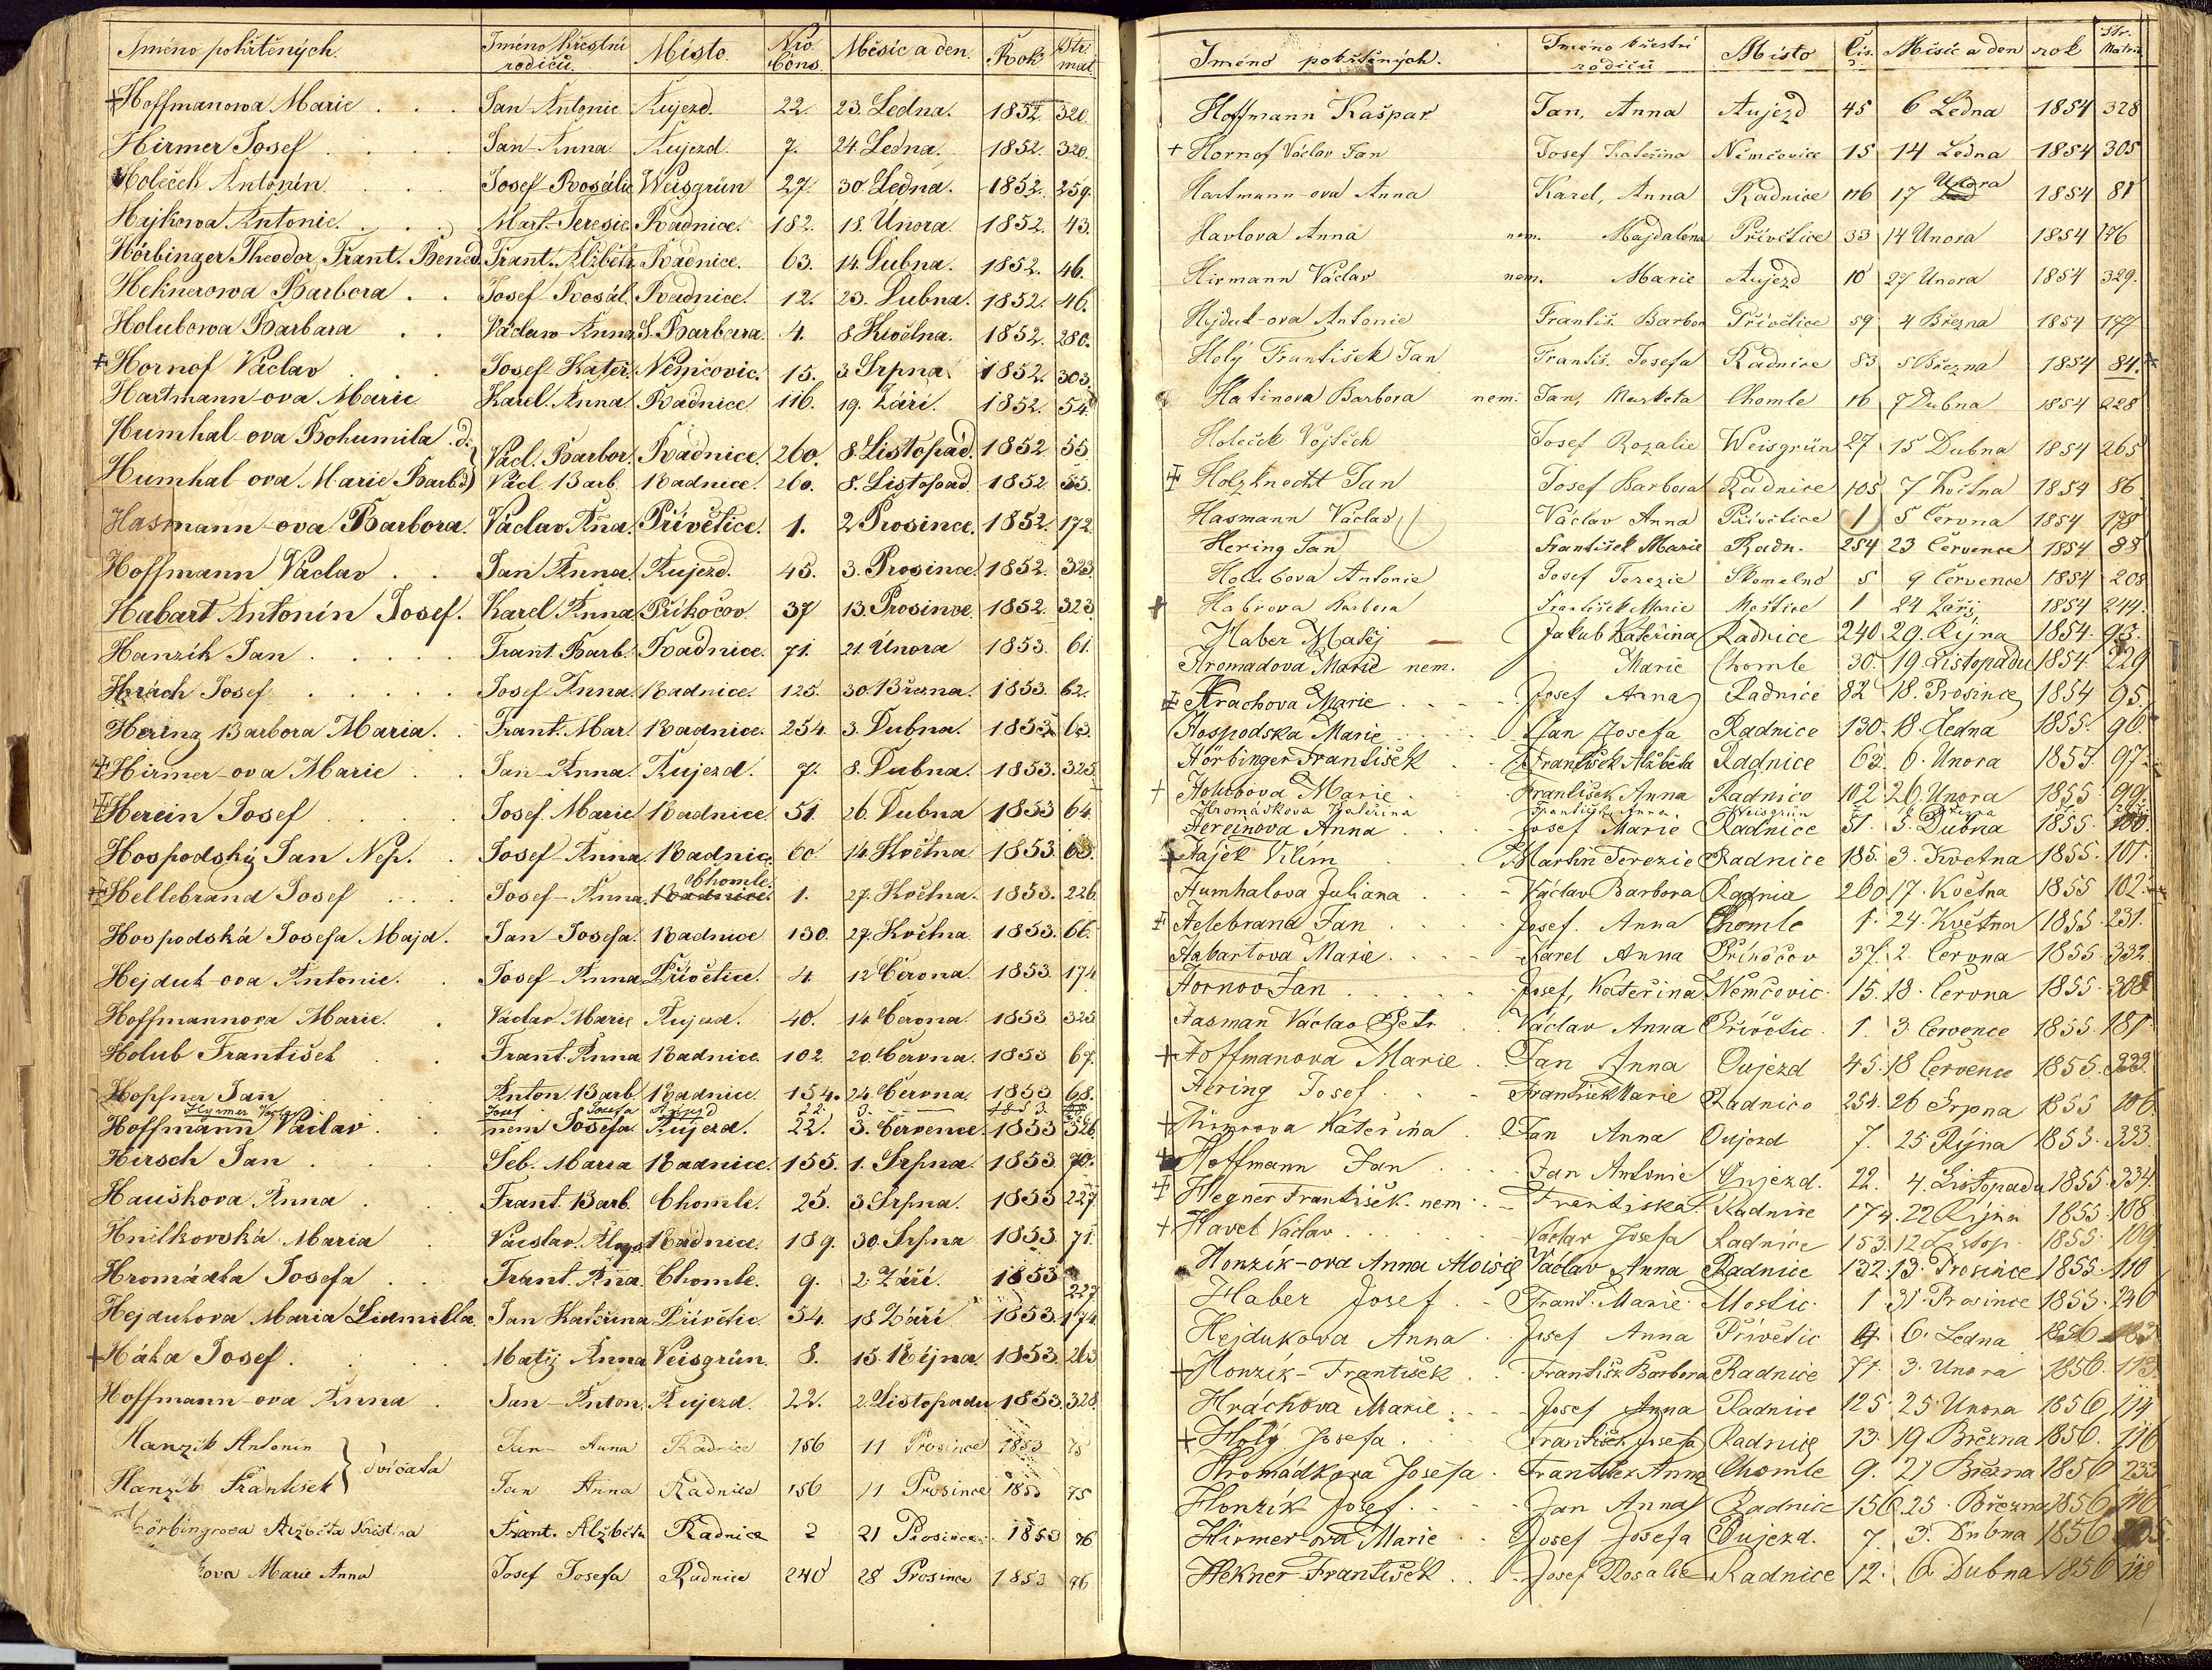 Jméno pokřtěných. Jméno křestní rodičů. Místo. Nro. Cons. Měsíc a den. Rok. Str. mat.
Hoffmanowa Marie Jan Antonie Aujezd. 22. 23. Ledna. 1852. 320.
Hirmer Josef Jan Anna Aujezd. 7. 24. Ledna. 1852. 320.
Holeček Antonín Josef Rosálie Weisgrün 27. 30. Ledna. 1852. 259.
Hajkowa Antonie. Mart. Teresie. Radnice. 182. 18. Února. 1852. 43.
Hörbinger Theodor, Frant. Bened. Frant. Alžběta Radnice. 63. 14. Dubna. 1852. 46.
Heknerowa Barbora Josef Rosál. Radnice. 12. 23. Dubna. 1852. 46.
Holubowa Barbara Václaw Anna S. Barbara. 4. 8 Května. 1852. 280.
Hornof Václav Josef Kateř. Němčovic. 15. 3. Srpna. 1852. 303.
Hartmann-ova Marie Karel. Anna Radnice 116. 19. Září. 1852. 54.
Humhal-ova Bohumila d. Václ. Barbor. Radnice. 260. 8. Listopad. 1852 55.
Humhal-ova Marie Barb. d. Václ. Barb. Radnice. 260. 8. Listopad. 1852 55.
Hasmann-ova Barbora. Václav Aña. Přívětice. 1. 2 Prosince. 1852. 172.
Hoffmann Václav Jan Anna. Aujezd. 45. 3. Prosince. 1852. 323.
Habart Antonín Josef. Karel Anna Příkočov 37 13. Prosince. 1852. 323.
Hanzík Jan Frant. Barb. Radnice. 71. 21. Února 1853. 61.
Hrách Josef Josef Anna. Radnice. 125. 30. Března. 1853. 62.
Hering Barbora Maria. Frant. Mar. Radnice. 254. 3. Dubna. 1853. 63.
Hirmer-ova Marie Jan Anna. Aujezd. 7. 8. Dubna. 1853. 325.
Herein Josef Josef Marie Radnice 51. 26. Dubna 1853 64.
Hospodský Jan Nep. Josef Anna Radnic. 60 14. Května 1853. 65.
Hellebrand Josef Josef - Anna. Chomle. Radnice. 1. 27. Května. 1853. 226.
Hospodská Josefa Majd. Jan Josefa. Radnice 130. 27. Května. 1853. 66.
Hejduk-ova Antonie. Josef Anna Přívětice. 4. 12 Června. 1853. 174
Hoffmannova Marie. Václav Marie Aujezd. 40. 14 Června. 1853 325
Holub František Frant. Anna Radnice 102. 20. Června. 1853 67.
Hoppner Jan Anton. Barb. Radnice. 154. 24. Června. 1853 68.
Hyrmer Václav Josef Josefa Aujezd 22. 3. 1853.
Hoffmann Václav. nem Josefa. Aujezd. 22. 3. Července. 1853 326
Hirsch Jan Seb. Maria Radnice. 155. 1. Srpna. 1853 70.
Hauškova Anna Frant. Barb. Chomle. 25. 3 Srpna. 1853 227
Hnilkovská Maria Václav. Aloys. Radnice. 189. 30. Srpna 1853. 71.
Hromádka Josefa Frant. Aňa. Chomle. 9. 2. Září. 1853 227
Hejdukova Maria Lidmilla. Jan Kateřina Přívětic. 54. 18 Září. 1853. 174
Háka Josef. Matěj Anna Veisgrün. 8. 15. Října. 1853. 263
Hoffmann-ova Anna Jan - Anton. Aujezd. 22. 2. Listopadu 1853. 328.
Hanzík Antonín Jan Anna Radnice 156 11 Prosince 1853 75
dvíčata
Hanzík František Jan Anna Radnice 156 11 Prosince 1853 75
örbingrova Alžběta Kristina Frant. Alžběta Radnice 2 21 Prosince 1853 76
ova Marie Anna Josef Josefa Radnice 240 28 Prosince 1853 76
Jméno pokřtěných. Jméno křestní rodičů Místo Čis. Měsíc a den rok Str. Matrik
Hoffmann Kašpar Jan, Anna Aujezd 45 6 Ledna 1854 328
Hornof Václav Jan Josef Kateřina Němčovice 15 14 Ledna 1854 305
Hartmann-ova Anna Karel, Anna Radnice 116 17 Února 1854 81
Havlova Anna nem. Majdaléna Přívětice 33 14 Unora 1854 176
Hirmann Václav nem. Marie Aujezd 10 27 Unora 1854 329.
Hejduk-ova Antonie Františ. Barbor Přívětice 59 4 Března 1854 177
Holý František Jan Františ. Josefa Radnice 83 5 Března 1854 84.
Hatinova Barbora nem. Jan, Markéta Chomle 16 7 Dubna 1854 228
Holeček Vojtěch Josef Rozalie Weisgrün 27 15 Dubna 1854 265
Holzknecht Jan Josef Barbora Radnice 105 7 Května 1854 86
Hasmann Václav Václav Anna Přívětice 1 5 Června 1854 178
Hering Jan František Marie Radn. 254 23 Července 1854 88
Holubova Antonie Josef Terezie Skomelno 5 9 Července 1854 208
Habrova Barbora František Marie Moštice 1 24 Září 1854 244.
Haber Matěj Jakub Kateřina Radnice 240 29. Října 1854. 93.
Hromadova Marie nem. Marie Chomle 30. 19. Listopadu 1854. 229
Hrachova Marie Josef Anna Radnice 82 18. Prosince 1854 95.
Hospodska Marie Jan Josefa Radnice 130. 18. Ledna 1855. 96.
Hörbinger František František Alžběta Radnice 63. 6. Unora 1855. 97.
Holubova Marie František Anna Radnice 102 26. Unora 1855. 99.
Hromádkova Kateřina Františ. Anna Weisgrün
Hereinova Anna Josef Marie Radnice 51. 5. Dubna 1855. 100.
Hájek Vilím Martin Terezie Radnice 185. 3. Kvetna 1855. 101.
Humhalova Juliana Václav Barbora Radnice 260 17. Května 1855 102.
Helebrand Jan Josef. Anna Chomle 1. 24. Května 1855. 231.
Habartova Marie Karel Anna Příkočov 37. 2. Června 1855. 332.
Hornov Jan Josef, Kateřina Němčovic. 15. 18. Června 1855. 308
Hasman Václav Petr Václav Anna Přívětic. 1. 3. Července 1855. 181.
Hoffmanova Marie Jan Anna Oujezd 45. 18 Července 1855. 333.
Hering Josef František Marie Radnice 254. 26 Srpna 1855 106.
Hirmrova Kateřina Jan Anna Oujezd 7. 25 Října 1855. 333.
Hoffmann Jan Jan Antonie Oujezd. 22. 4. Listopadu 1855. 334.
Hegner František. nem. Františka. Radnice 174. 22 Října 1855. 108.
Havel Václav Václav Josefa Radnice 153. 12 Listop. 1855. 109
Honzík-ova Anna Aloisie Václav Anna Radnice 132. 13. Prosince 1855. 110
Haber Josef Frant. Marie. Mostic. 1 31. Prosince 1855. 246
Hejdukova Anna Josef Anna Přívětic 4 6. Ledna 1856 183
Honzík - František František Barbora Radnice 71. 3. Unora 1856. 113.
Hráchova Marie Josef Anna Radnice 125. 25. Unora 1856. 114
Holý Josefa František Josefa Radnice 13. 19. Března 1856. 116
Hromádkova Josefa František Anna Chomle 9. 21 Března 1856 233
Honzík Josef Jan Anna Radnice 156. 25. Března 1856 116
Hirmer-ova Marie Josef Josefa Oujezd. 7. 3. Dubna 1856
Hekner František Josef Rosalie Radnice 12. 6. Dubna 1856 118